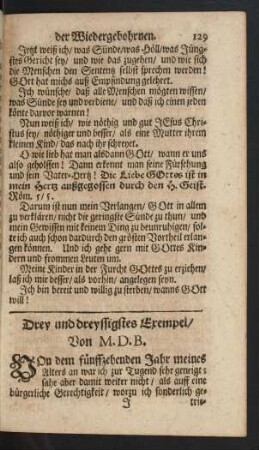 der Wiedergebohrnen. 129
Jetzt weiß ich/ was Sünde/was Höll/was Jüng-
stes Gericht sey/ und wie das zugehen/ und wie sich
die Menschen den Sententz selbst sprechen werden!
GOtt hat michs auß Empfindung gelehret.
Ich wünsche/ daß alle Menschen mögten wissen/
was Sünde sey und verdiene/ und daß ich einen jeden
könte davor warnen!
Nun weiß ich/ wie nöthig und gut JEsus Chri-
stus sey/ nöthiger und besser/ als eine Mutter ihrem
kleinen Kind/ das nach ihr schreyet.
O wie lieb hat man alsdann GOtt/ wann er uns
also geholffen! Dann erkennt man seine Fürsehung
und sein Vater-Hertz! Die Liebe GOttes ist in
mein Hertz außgegossen durch den H. Geist.
Röm. 5/5.
Darum ist nun mein Verlangen/ GOtt in allem
zu verklären/ nicht die geringste Sünde zu thun/ und
mein Gewissen mit keinem Ding zu beunruhigen/ sol-
te ich auch schon dardurch den grösten Vortheil erlan-
gen können. Und ich gehe gern mit GOttes Kin-
dern und frommen Leuten um.
Meine Kinder in der Furcht GOttes zu erziehen/
laß ich mir besser/ als vorhin/ angelegen seyn.
Ich bin bereit und willig zu sterben/ wanns GOtt
will!
Drey und dreyssigstes Exempel/
Von M. D. B.
VOn dem fünffzehenden Jahr meines
Alters an war ich zur Tugend sehr geneigt:
sahe aber damit weiter nicht/ als auff eine
bürgerliche Gerechtigkeit/ worzu ich sonderlich ge-
J trie-